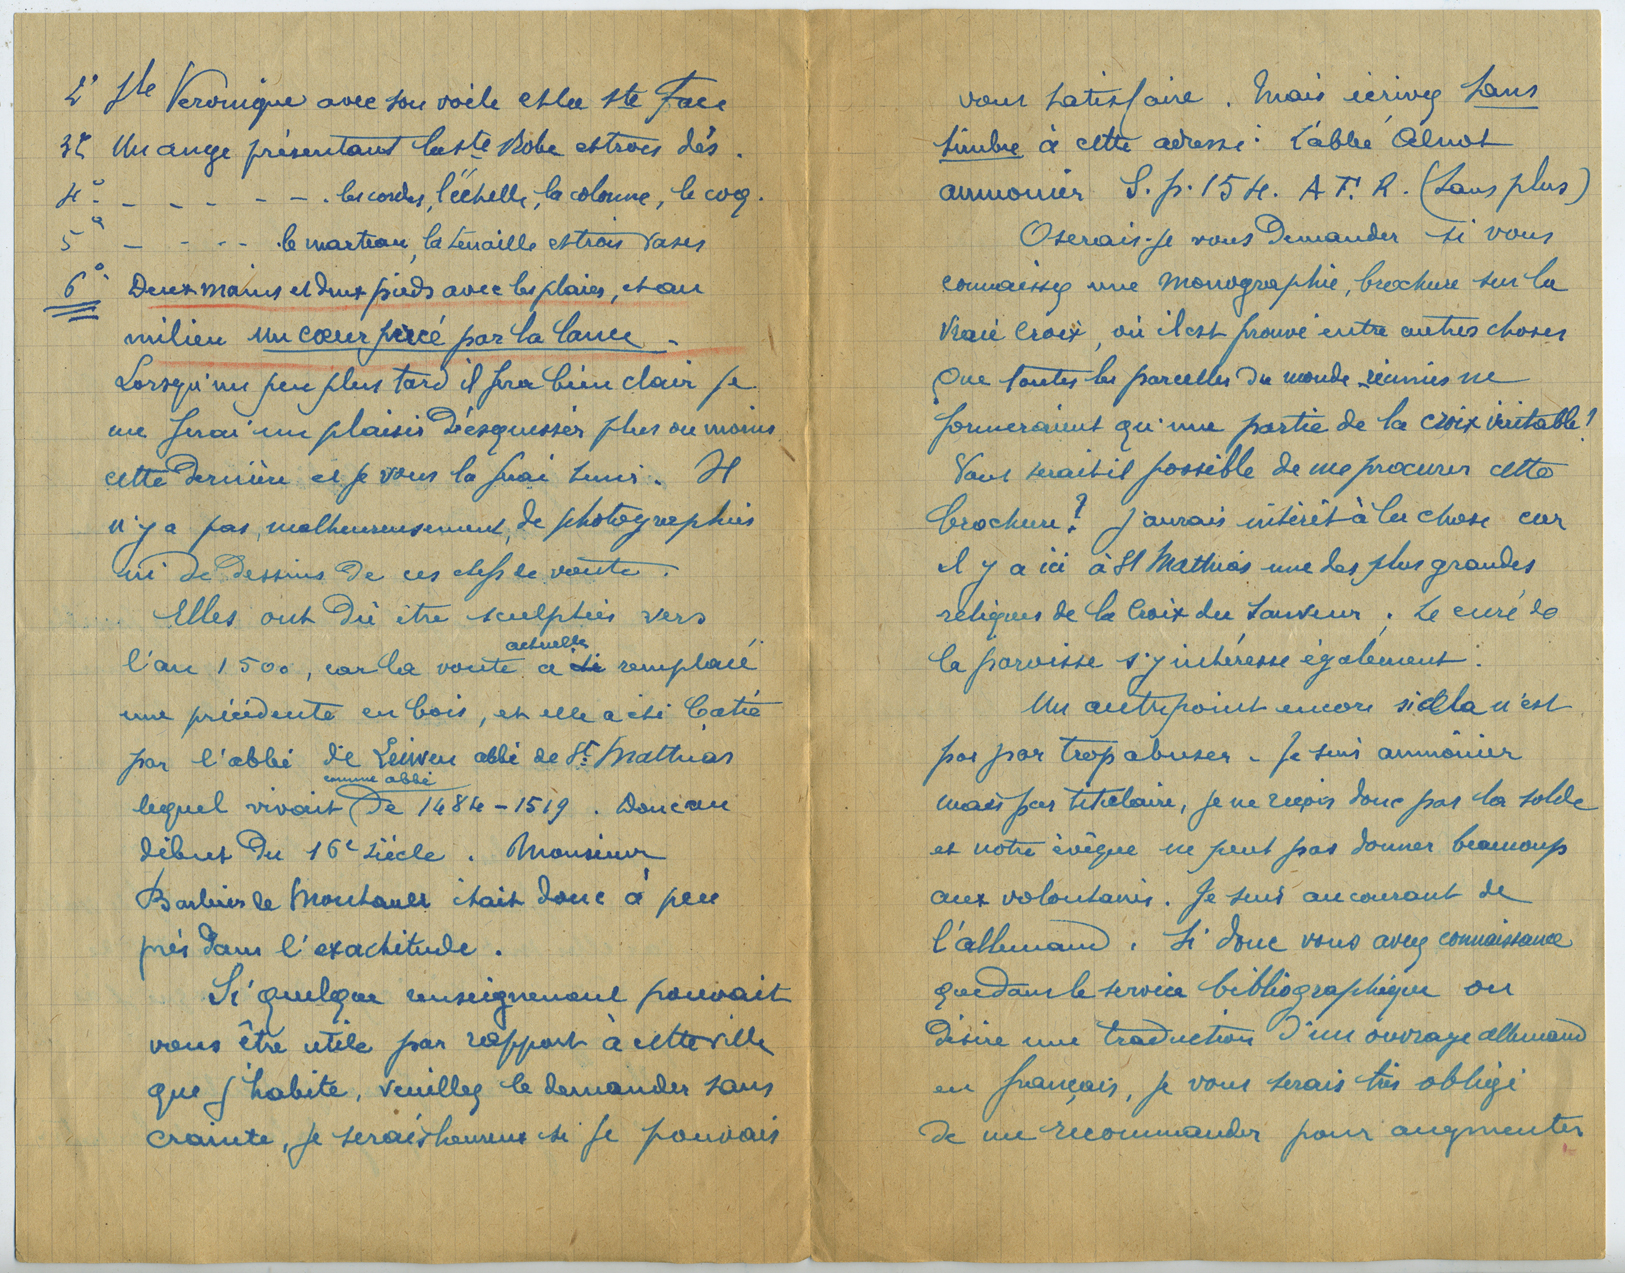 2° Ste Veronique avec son voile et la Ste Face
3° Un ange présentant la ste Robe et trois dés.
4° - - - - - - . les cordes, l'échelle, la colonne, le coq.
5° - - - - . le marteau, la tenaille et trois vases
6° Deux mains et deux pieds avec les plaies, et au
milieu un cœur percé par la lance -
Lorsqu'un peu plus tard il fera bien clair je
me ferai un plaisir d'ésquisser plus ou moins
cette dernière et je vous la ferai tenir. Il
n'y a pas, malheureusement, de photographies
ni de dessins de ces clefs de voûte.
Elles ont dû être sculptées vers
l'an 1500, car la voute actuelle a remplacé
une précédente en bois, et elle a été batie
par l'abbé de Leiwen abbé de St. Mathias
lequel vivait comme abbé de 1484-1519. Donc au
début du 16e siècle. Monsieur
Barbier de Montault était donc à peu
près dans l'exactitude.
Si quelque renseignement pouvait
vous être utile par rapport à cette ville
que j'habite, veuillez le demander sans
crainte, je serais heureux si je pouvais
vous satisfaire. Mais écrivez sans
timbre à cette adresse: L'abbé Alnot
aumonier S.p. 154. A.F.R. (sans plus)
Oserais-je vous demander si vous
connaissez une monographie, brochure sur la
Vraie Croix, où il est prouvé entre autres choses
que toutes les parcelles du monde réunies ne
formeraient qu'une partie de la croix véritable!
Vous serait il possible de me procurer cette
brochure? J'aurais intérêt à la chose car
il y a ici à St Mathias une des plus grandes
reliques de la Croix du Sauveur. Le curé de
la paroisse s'y intéresse également.
Un autre point encore si cela n'est
pas par trop abuser - Je suis aumônier
mais pas titulaire, je ne reçois donc pas la solde
et notre évêque ne peut pas donner beaucoup
aux volontaires. Je suis au courant de
l'allemand. Si donc vous avez connaissance
que dans le service bibliographique on
désire une traduction d'un ouvrage allemand
en français, je vous serais très obligé
de me recommander pour augmenter